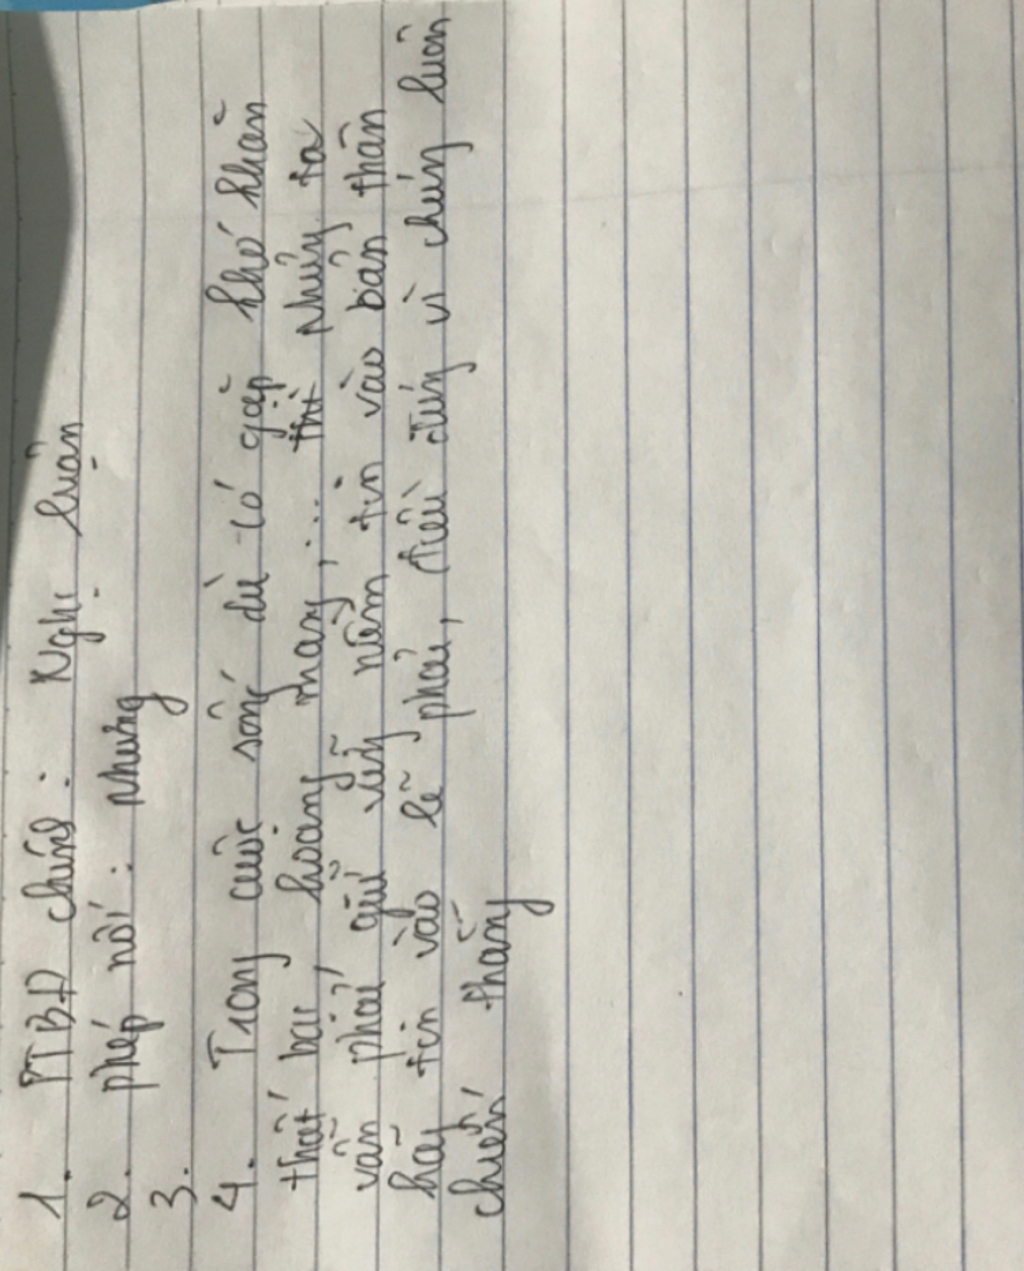 1. PTBĐ chính : Nghị luận
2. phép nối : nhưng
3.
4. Trong cuộc sống dù có gặp khó khăn
thất bại, hoang mang,... thì chúng ta
vẫn phải giữ vững niềm tin vào bản thân
hãy tin vào lẽ phải, điều đúng vì chúng luôn
chiến thắng